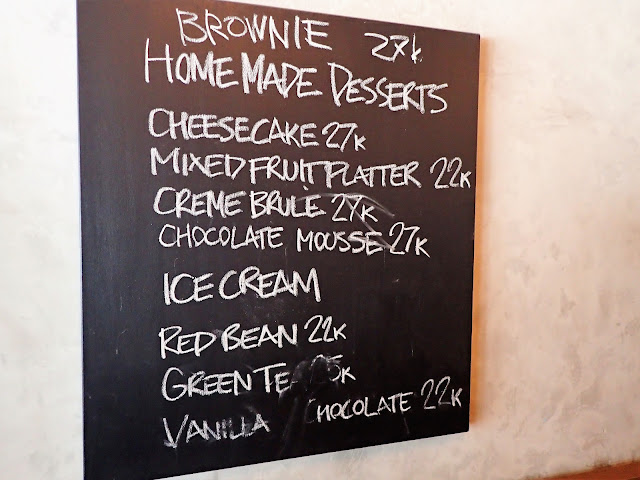 BROWNIE 27k
HOME MADE DESSERTS
CHEESECAKE 27K
MIXED FRUIT PLATTER 22K
CREME BRULE 27K
CHOCOLATE MOUSSE 27K
ICE CREAM
RED BEAN 22K
GREEN TE
VANILLA CHOCOLATE 22K